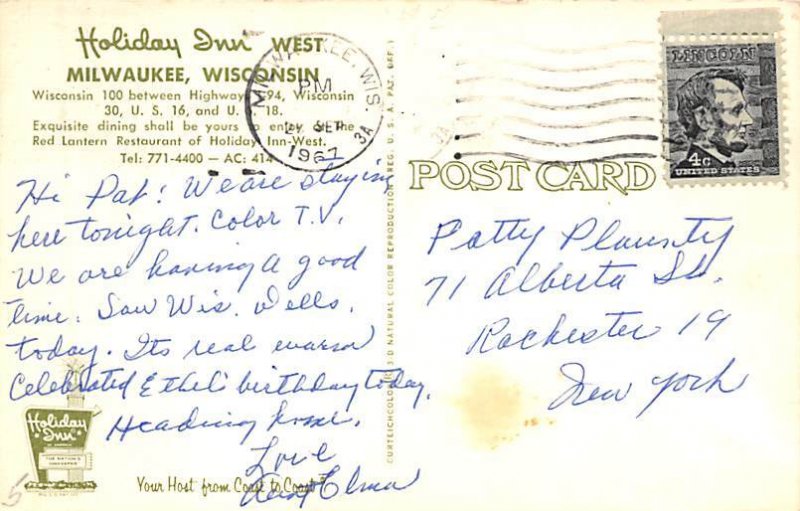 Holiday Inn WEST
MILWAUKEE, WISCONSIN
Wisconsin 100 between Highways 94, Wisconsin
30, U. S. 16, and U. 18.
Exquisite dining shall be yours to enjoy at the
Red Lantern Restaurant of Holiday Inn-West.
Tel: 771-4400 — AC: 414
MILWAUKEE, WIS.
PM
SEP
1967
3A
Hi Pat! We are staying
here tonight. Color T.V.
We are having a good
time. Saw Wis. Dells.
today. Its real warm
Celebrated Ethel's birthday today.
Heading home.
Love
Aunt Elma
Holiday
Inn
Your Host from Coast to Coast
5
CURTEICHCOLOR 3 D NATURAL COLOR REPRODUCTION (REG. U. S. A. PAT. OFF.)
POST CARD
LINCOLN
4c
UNITED STATES
Patty Plansty
71 Alberta St.
Rochester 19
New York